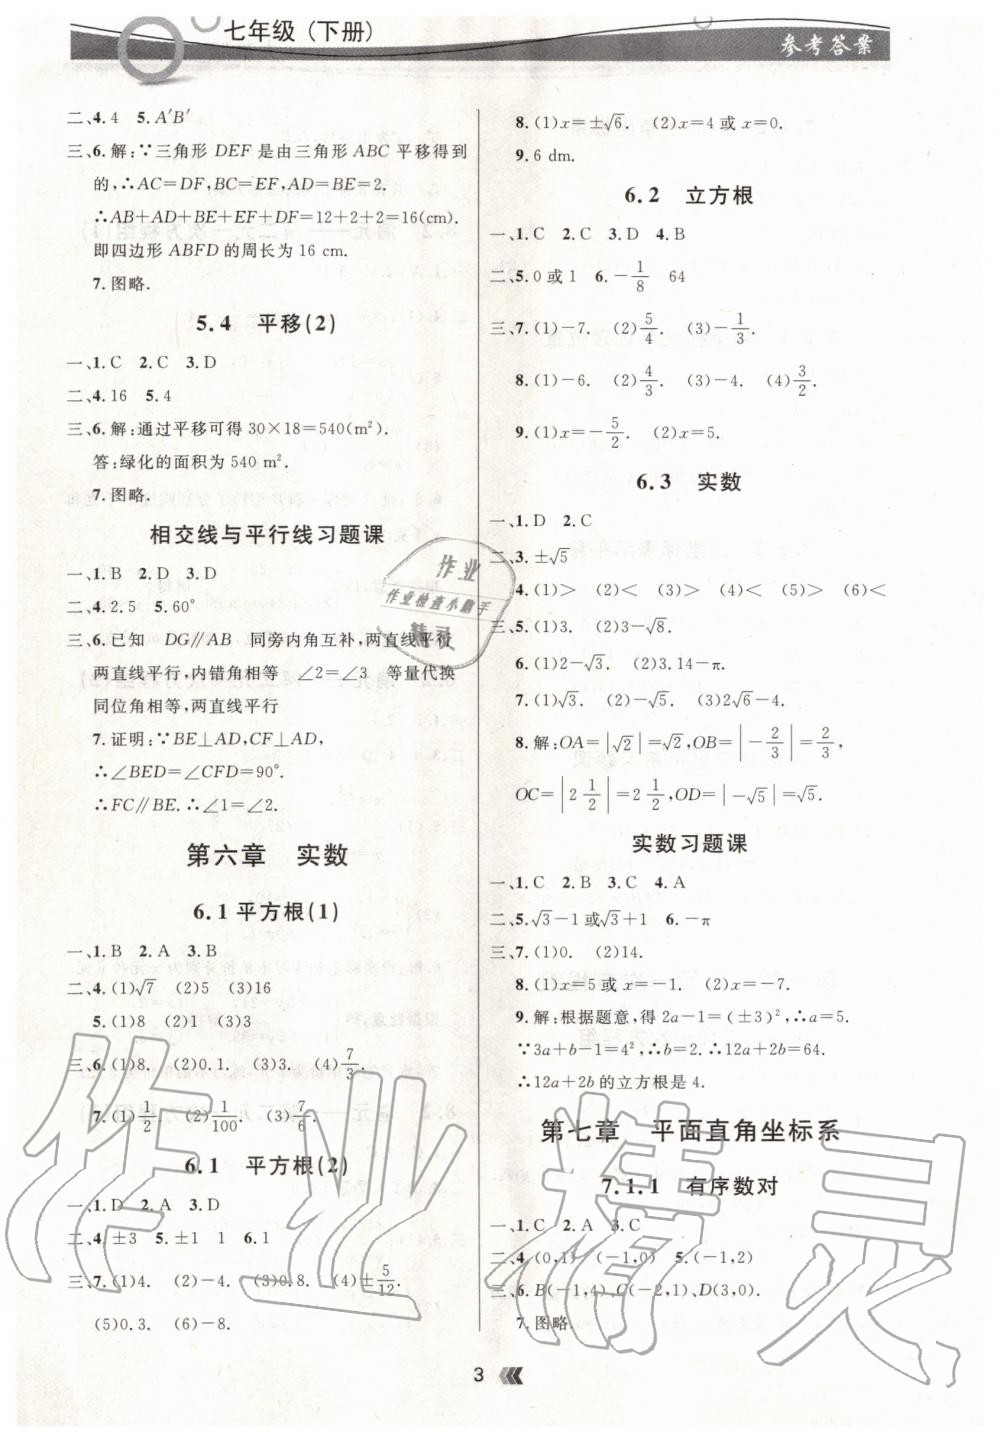 七年级（下册）
参考答案
二、4.4 5.A′B′
三、6.解:∵三角形 DEF 是由三角形 ABC 平移得到
的,∴AC=DF,BC=EF,AD=BE=2.
∴AB+AD+BE+EF+DF=12+2+2=16(cm).
即四边形 ABFD 的周长为 16 cm.
7.图略.
5.4 平移(2)
一、1.C 2.C 3.D
二、4.16 5.4
三、6.解:通过平移可得 30×18=540(m²).
答:绿化的面积为 540 m².
7.图略.
相交线与平行线习题课
一、1.B 2.D 3.D
二、4.2.5 5.60°
三、6.已知 DG∥AB 同旁内角互补,两直线平行
两直线平行,内错角相等 ∠2=∠3 等量代换
同位角相等,两直线平行
7.证明:∵BE⊥AD,CF⊥AD,
∴∠BED=∠CFD=90°.
∴FC∥BE.∴∠1=∠2.
第六章 实数
6.1平方根(1)
一、1.B 2.A 3.B
二、4.(1)√7 (2)5 (3)16
5.(1)8 (2)1 (3)3
三、6.(1)8. (2)0.1. (3)3. (4)7/3.
7.(1)1/2 (2)1/100. (3)7/6.
6.1 平方根(2)
一、1.D 2.A 3.D
二、4.±3 5.±1 1 6.1
三、7.(1)4. (2)-4. (3)0.8. (4)±5/12.
(5)0.3. (6)-8.
8.(1)x=±√6. (2)x=4 或 x=0.
9.6 dm.
6.2 立方根
一、1.C 2.C 3.D 4.B
二、5.0 或 1 6.-1/8 64
三、7.(1)-7. (2)5/4. (3)-1/3.
8.(1)-6. (2)4/3. (3)-4. (4)3/2.
9.(1)x=-5/2. (2)x=5.
6.3 实数
一、1.D 2.C
二、3.±√5
4.(1)> (2)< (3)> (4)< (5)> (6)<
三、5.(1)3. (2)3-√8.
6.(1)2-√3. (2)3.14-π.
7.(1)√3. (2)-√5. (3)2√6-4.
8.解:OA=|√2|=√2,OB=|-2/3|=2/3,
OC=|2 1/2|=2 1/2,OD=|-√5|=√5.
实数习题课
一、1.C 2.B 3.C 4.A
二、5.√3-1 或√3+1 6.-π
三、7.(1)0. (2)14.
8.(1)x=5 或 x=-1. (2)x=-7.
9.解:根据题意,得 2a-1=(±3)²,∴a=5.
∵3a+b-1=4²,∴b=2.∴12a+2b=64.
∴12a+2b 的立方根是 4.
第七章 平面直角坐标系
7.1.1 有序数对
一、1.C 2.A 3.C
二、4.(0,1) (-1,0) 5.(-1,2)
三、6.B(-1,4)、C(-2,1)、D(3,0).
7.图略.
3
作业
作业检查小助手
精灵
作业精灵